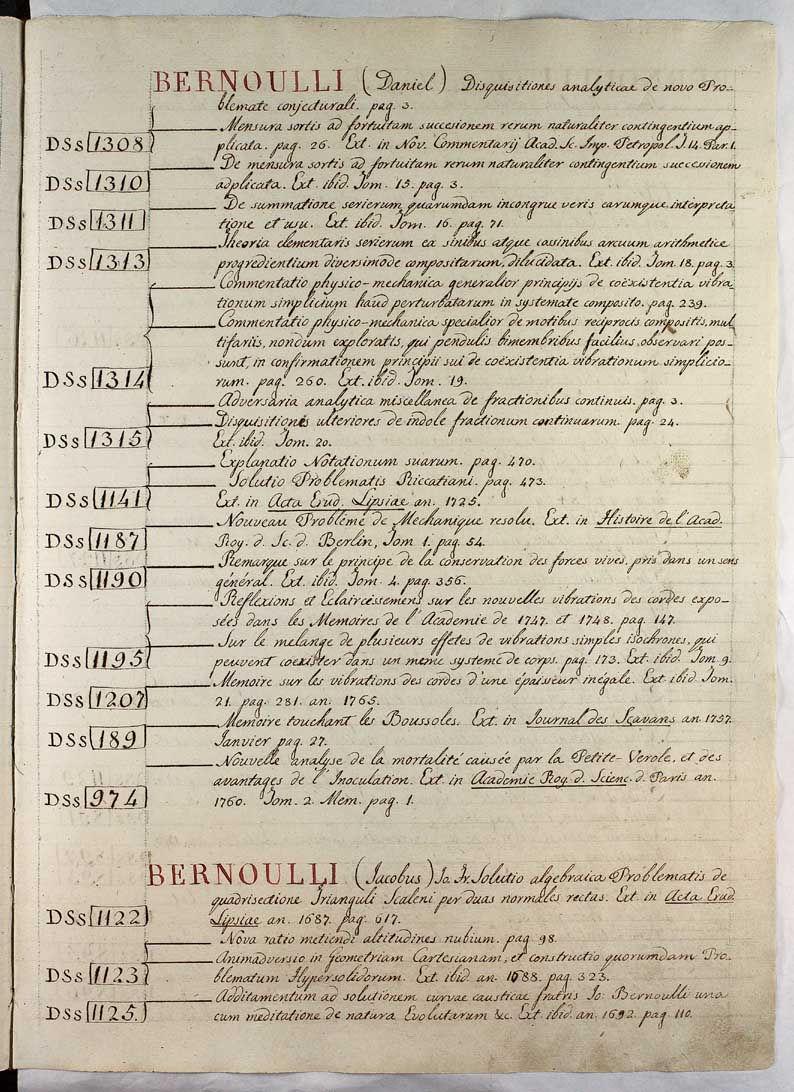 BERNOULLI (Daniel) Disquisitiones analyticae de novo Pro-
blemate conjecturali. pag. 3.
Mensura sortis ad fortuitam succesionem rerum naturaliter contingentium ap-
DSs 1308 plicata. pag. 26. Ext. in Nov. Commentarij Acad. Sc. Imp. Petropol. T. 14. Par. 1.
De mensura sortis ad fortuitam rerum naturaliter contingentium successionem
DSs 1310 adplicata. Ext. ibid. Tom. 15. pag. 3.
De summatione serierum quarumdam incongrue veris earumque interpreta
DSs 1311 tione et usu. Ext. ibid. Tom. 16. pag. 71.
Theoria elementaris serierum ea sinibus atque cossinibus arcuum arithmetice
DSs 1313 progredientium diversimode compositarum, dilucidata. Ext. ibid. Tom 18. pag. 3
Commentatio physico-mechanica generalior principijs de coëxistentia vibra
tionum simplicium haud perturbatarum in systemate composito. pag. 239.
Commentatio physico-mechanica specialior de motibus reciprocis compositis, mul
tifariis, nondum exploratis, qui pendulis bimembribus facilius observari pos-
sunt, in confirmationem principii sui de coëxistentia vibrationum simplicio-
DSs 1314 rum. pag. 260. Ext. ibid. Tom. 19.
Adversaria analytica miscellanea de fractionibus continuis. pag. 3.
Disquisitiones ulteriores de indole fractionum continuarum. pag. 24.
DSs 1315 Ext. ibid. Tom. 20.
Explanatio Notationum suarum. pag. 470.
Solutio Problematis Riccatiani. pag. 473.
DSs 1141 Ext. in Acta Erud. Lipsiae an. 1725.
Nouveau Problême de Mechanique resolu. Ext. in Histoire de l'Acad.
DSs 1187 Roy. d. Sc. d. Berlin, Tom 1. pag. 54.
Remarque sur le principe de la conservation des forces vives, pris dans un sens
DSs 1190 général. Ext. ibid. Tom. 4. pag. 356.
Reflexions et Eclaircissemens sur les nouvelles vibrations des cordes expo-
sées dans les Memoires de l'Academie de 1747. et 1748. pag. 147.
Sur le melange de plusieurs effetes de vibrations simples isochrones, qui
DSs 1195 peuvent coexister dans un meme systeme de corps. pag. 173. Ext. ibid. Tom. 9.
Memoire sur les vibrations des cordes d'une épaisseur inégale. Ext. ibid. Tom.
DSs 1207 21. pag. 281. an. 1765.
Memoire touchant les Boussoles. Ext. in Journal des Sçavans an. 1757.
DSs 189 Janvier pag. 27.
Nouvelle analyse de la mortalité causée par la Petite-Verole, et des
avantages de l'Inoculation. Ext. in Academie Roy. d. Scienc. d. Paris an.
DSs 974 1760. Tom. 2. Mem. pag. 1.
BERNOULLI (Iacobus) Io. Fr. Solutio algebraica Problematis de
quadrisectione Trianguli Scaleni per duas normales rectas. Ext. in Acta Erud.
DSs 1122 Lipsiae an. 1687. pag. 617.
Nova ratio metiendi altitudines nubium. pag. 98.
Animadversio in Geometriam Cartesianam, et constructio quorumdam Pro-
DSs 1123 blematum Hypersolidorum. Ext. ibid. an. 1688. pag. 323.
Additamentum ad solutionem curvae causticae fratris Io: Bernoulli una
DSs 1125. cum meditatione de natura Evolutarum &c. Ext. ibid. an. 1692. pag. 110.